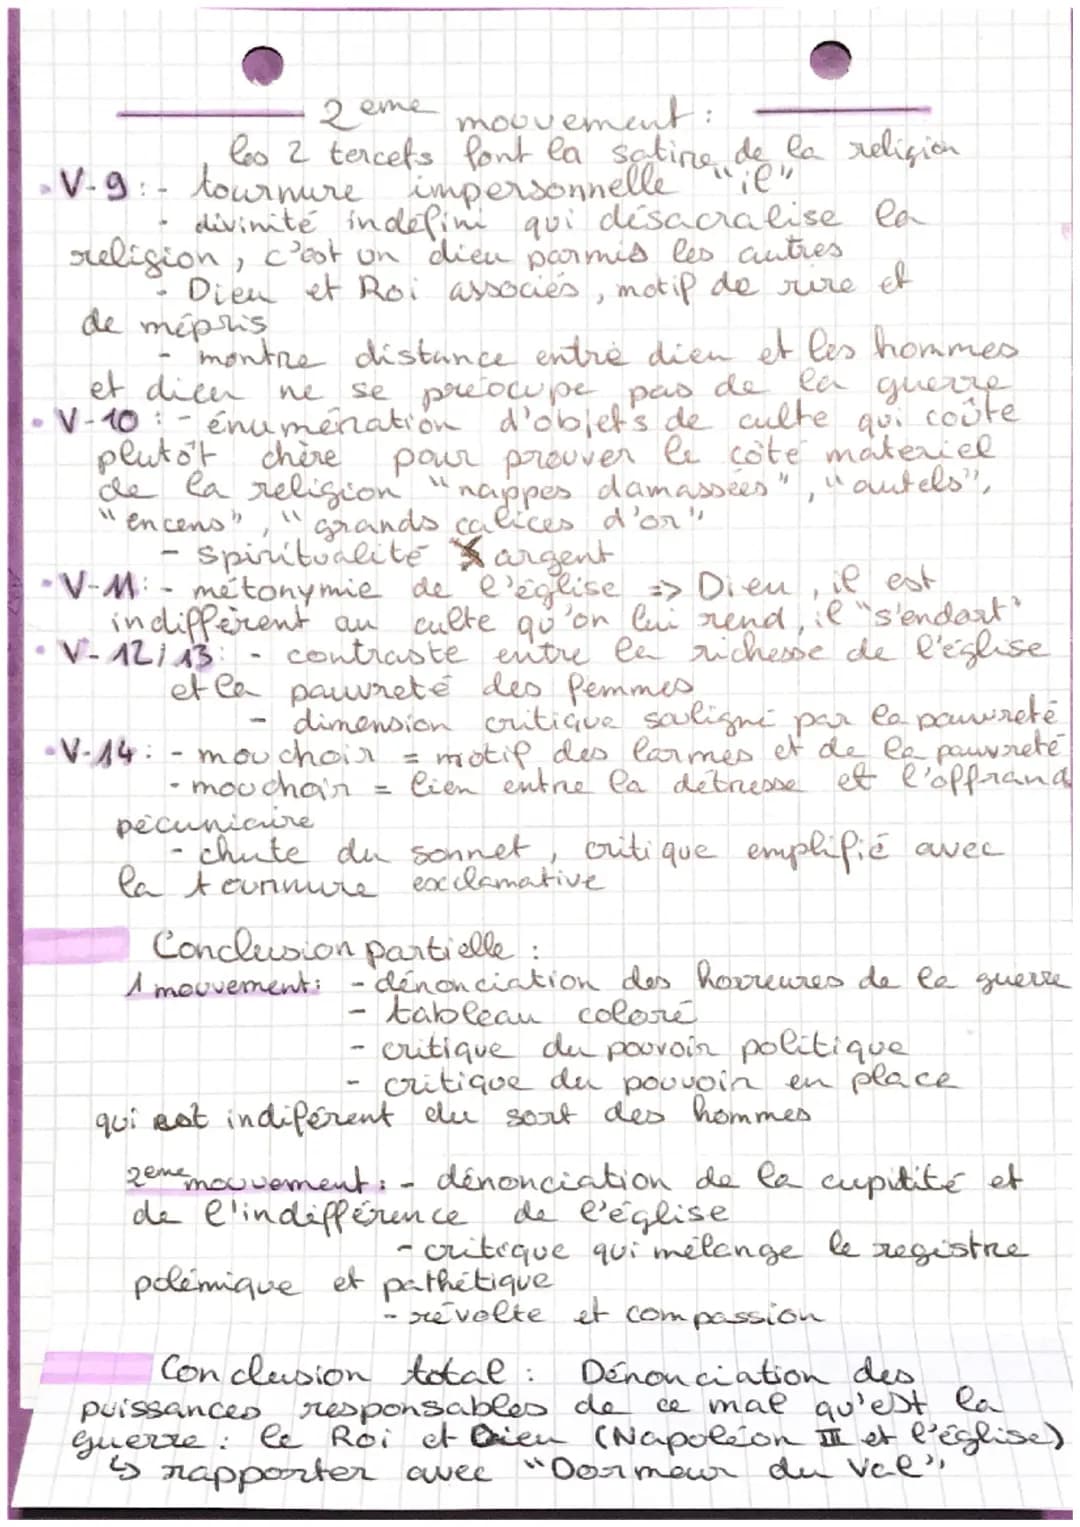 2 eme mouvement :
les 2 tercets font la satire de la religion
V-9 : - tournure impersonnelle "il"
- divinité indéfini qui désacralise la
religion, c'est un dieu parmis les autres
- Dieu et Roi associés, motif de rire et
de mépris
- montre distance entre dieu et les hommes
et dieu ne se préocupe pas de la guerre
V-10 : - énumération d'objets de culte qui coûte
plutôt chère pour prouver le côté matériel
de la religion "nappes damassées", "autels",
"encens", "grands calices d'or"
- spiritualité argent
V-11 : - métonymie de l'église => Dieu, il est
indifférent au culte qu'on lui rend, il "s'endort"
V-12/13 : - contraste entre la richesse de l'église
et la pauvreté des femmes
- dimension critique souligné par la pauvreté
V-14 : - mouchoir = motif des larmes et de la pauvreté
- mouchoir = lien entre la détresse et l'offrand
pécuniaire
- chute du sonnet, critique emplifié avec
la tournure exclamative
Conclusion partielle :
1 mouvement : - dénonciation des horreures de la guerre
- tableau coloré
- critique du pouvoir politique
- critique du pouvoir en place
qui est indiférent du sort des hommes
2eme mouvement : - dénonciation de la cupitité et
de l'indifférence de l'église
- critique qui mélange le registre
polémique et pathétique
- révolte et compassion
Conclusion total : Dénonciation des
puissances responsables de ce mal qu'est la
guerre : le Roi et Dieu (Napoléon III et l'église)
↳ rapporter avec "Dormeur du Val"